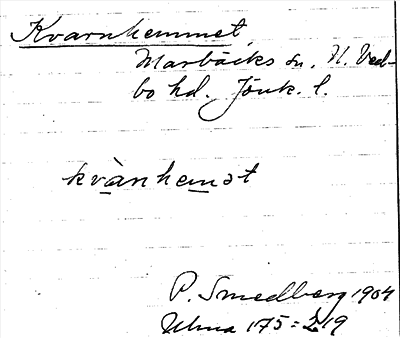 Kvarnhemmet
Marbäcks sn, N. Ved-
bo hd. Jönk. l.
kvànhemət
P. Smedberg 1904
Ulma 175:219